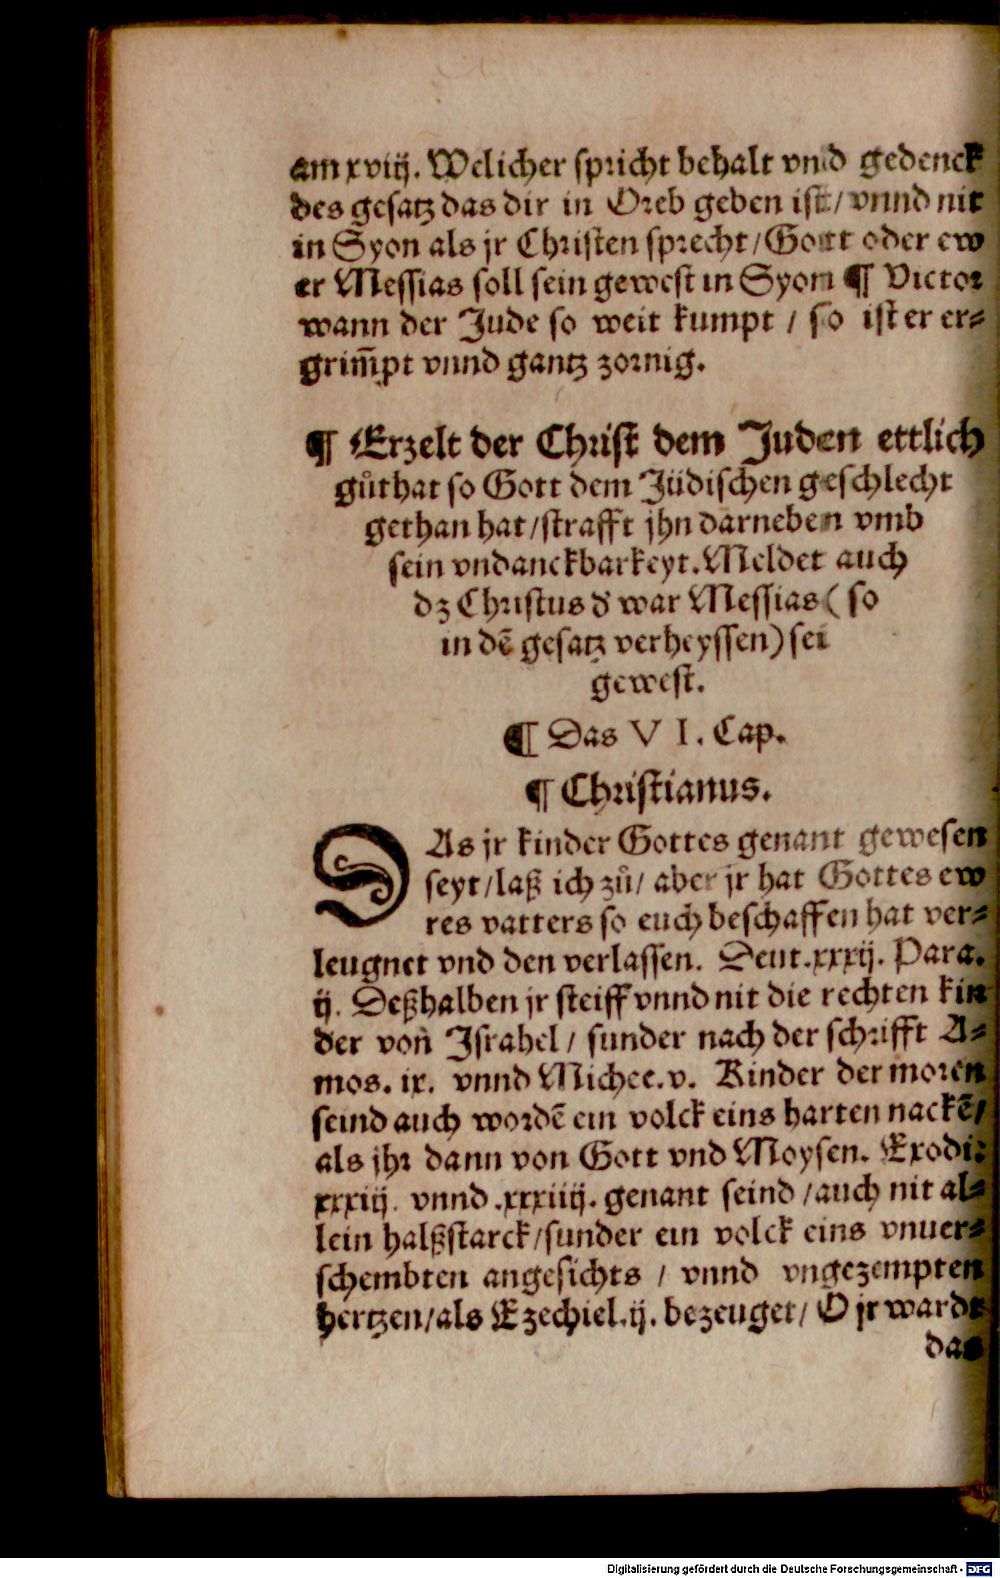 am xviij. Welicher spricht behalt vnd gedenck
des gesatz das dir in Oreb geben ist / vnnd nit
in Syon als jr Christen sprecht / Gott oder ew
er Messias soll sein gewest in Syon ¶ Victor
wann der Jude so weit kumpt / so ist er er⸗
grim̃pt vnnd gantz zornig.
¶ Erzelt der Christ dem Juden ettlich
gůthat so Gott dem Jüdischen geschlecht
gethan hat / strafft jhn darneben vmb
sein vndanckbarkeyt. Meldet auch
dz Christus d' war Messias ( so
in dē gesatz verheyssen) sei
gewest.
¶ Das VI. Cap.
¶ Christianus.
DAs jr kinder Gottes genant gewesen
seyt / laß ich zů / aber jr hat Gottes ew
res vatters so euch beschaffen hat ver⸗
leugnet vnd den verlassen. Deut. xxxij. Para.
ij. Deßhalben jr steiff vnnd nit die rechten kin
der von Israhel / sunder nach der schrifft A⸗
mos. ix. vnnd Michee. v. Kinder der moren
seind auch wordē ein volck eins harten nackē /
als jhr dann von Gott vnd Moysen. Exodi:
xxxiij. vnnd .xxxiiij. genant seind / auch nit al⸗
lein halßstarck / sunder ein volck eins vnuer⸗
schembten angesichts / vnnd vngezempten
hertzen / als Ezechiel. ij. bezeuget / O jr wardt
das
Digitalisierung gefördert durch die Deutsche Forschungsgemeinschaft - DFG